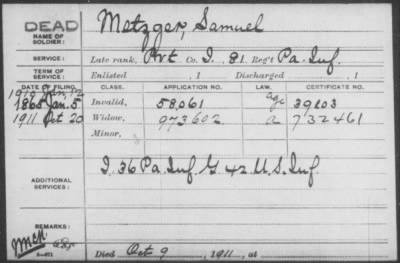 DEAD
NAME OF SOLDIER: Metzger, Samuel
SERVICE: Late rank, Pvt Co. I, 81 Reg't Pa. Inf.
TERM OF SERVICE: Enlisted , 1 Discharged , 1
DATE OF FILING. CLASS. APPLICATION NO. LAW. CERTIFICATE NO.
1865 Jan. 5 Invalid, 58,061 39203
1911 Oct 20 Widow, 973602 a 732461
Minor,
ADDITIONAL SERVICES: I, 36 Pa. Inf. G 42 U.S. Inf.
REMARKS:
Died Oct 9 , 1911, at